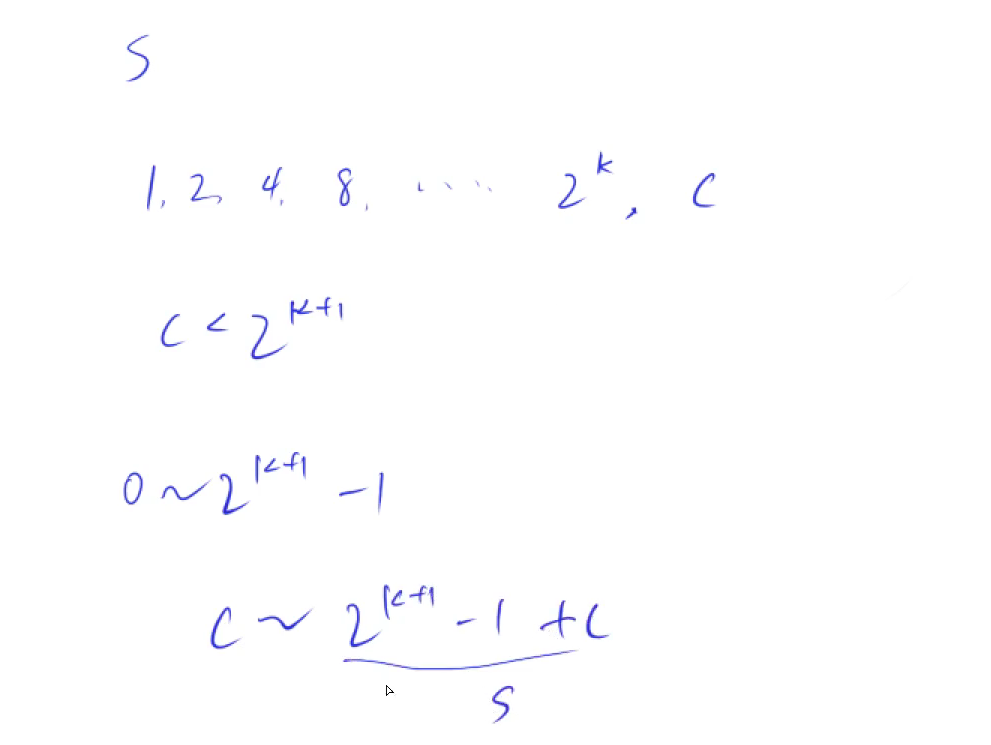 S
1, 2, 4, 8, .... 2^k, C
C < 2^{k+1}
0 ~ 2^{k+1} - 1
C ~ 2^{k+1} - 1 + C
S